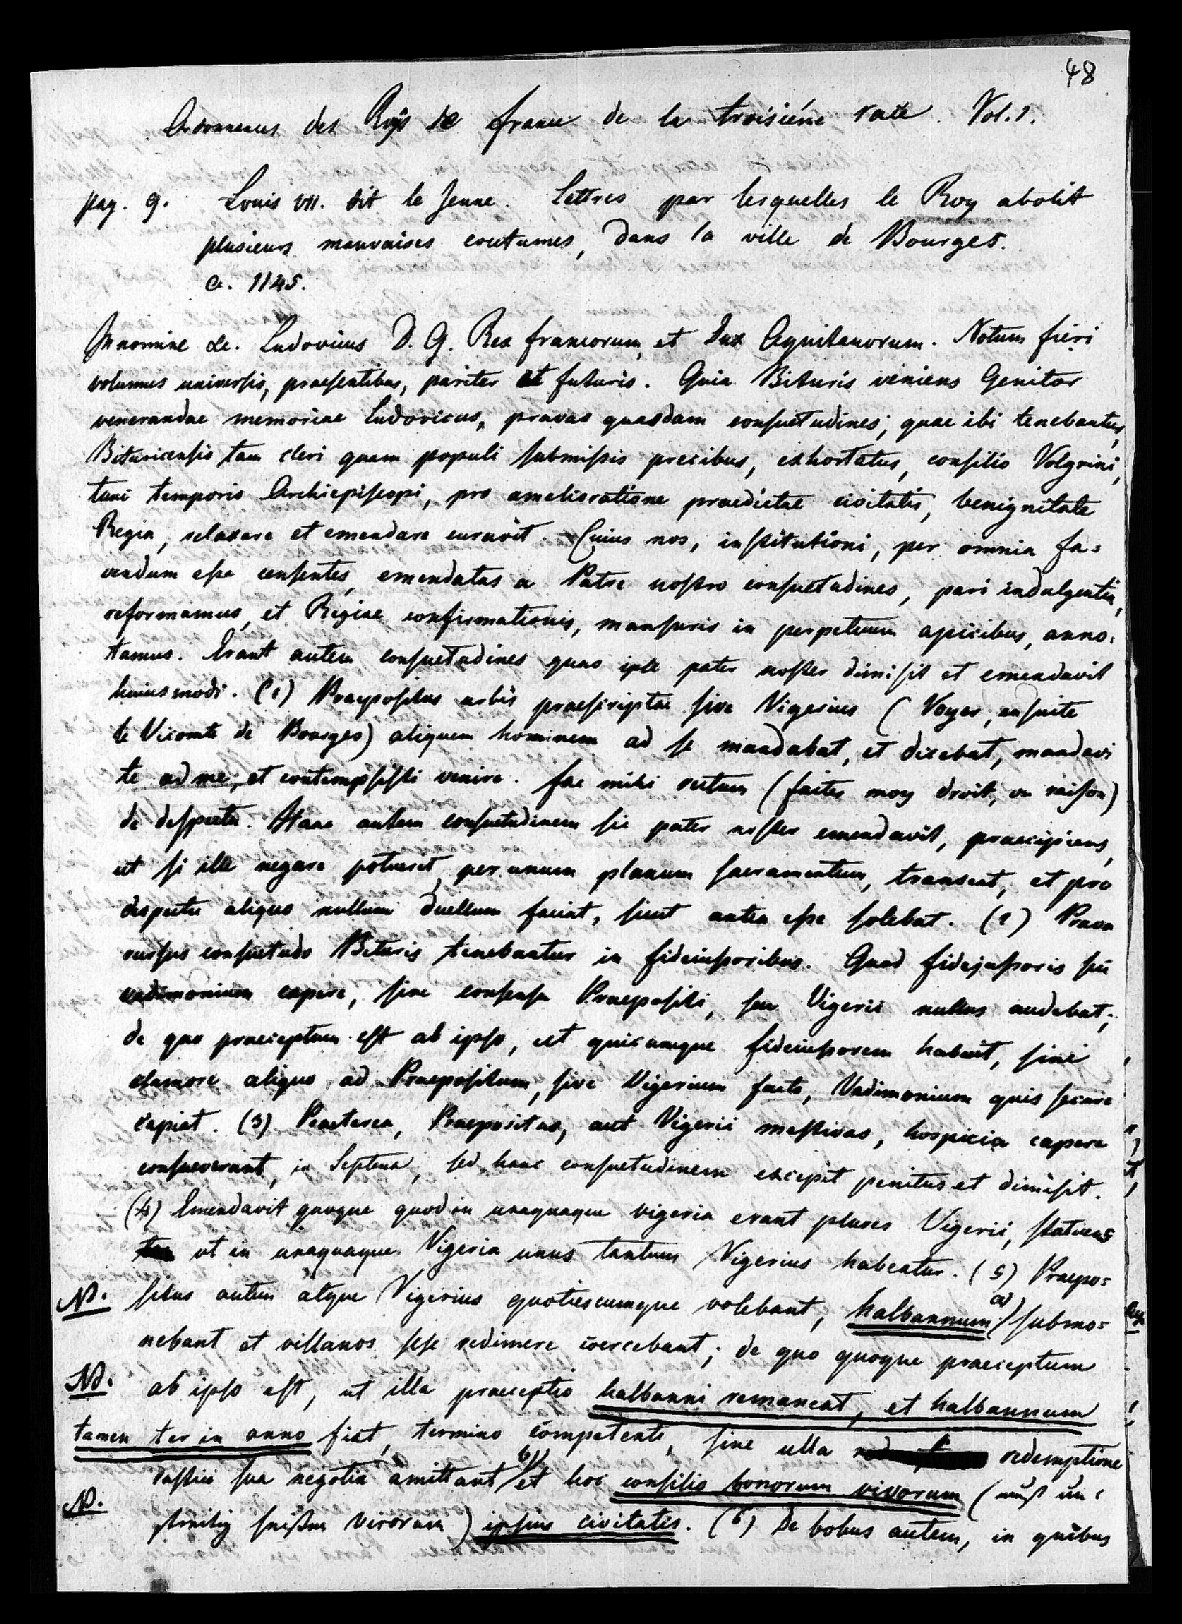 48
Ordonnances des Roys de france de la troisiéme race. Vol. 1.
pag. 9. Louis VII. dit le Jeune. Lettres par lesquelles le Roy abolit
plusieurs mauvaises coutumes, dans la ville de Bourges.
a. 1145.
In nomine &c. Ludovicus D. G. Rex francorum, et Dux Aquitanorum. Notum fieri
volumus universis, praesentibus, pariter et futuris. Quia Bituris veniens Genitor
venerandae memoriae Ludovicus, pravas quasdam consuetudines, quae ibi tenebantur,
Bituricensis tam cleri quam populi submissis precibus, exhortatus, consilio Volgrini,
tunc temporis Archiepiscopi, pro amelioratione praedictae civitatis, benignitate
Regia, relaxare et emendare curavit. Cuius nos, institutioni, per omnia fa=
vendum esse censentes, emendatas a Patre nostro consuetudines, pari indulgentia,
reformamus, et Regiae confirmationis, mansuris in perpetuum apicibus, anno=
tamus. Erant autem consuetudines quas ipse pater noster dimisit et emendavit
huiusmodi. (1) Praepositus urbis praescriptae sive Vigerius (Voyer, ensuite
le Vicomte de Bourges) aliquem hominem ad se mandabat, et dicebat, mandavi
te ad me, et contempsisti venire. fac mihi rectum (faites moy droit, ou raison)
de despectu. Hanc autem consuetudinem sic pater noster emendavit, praecipiens,
ut si ille negare potuerit, per unum planum sacramentum, transeat, et pro
despectu aliquo nullum duellum faciat, sicut antea esse solebat. (2) Prava
rursus consuetudo Bituris tenebantur in fideiussoribus. Quod fidejussoris sui
vadimonium capere, sine consensu Praepositi, seu Vigerii nullus audebat;
de quo praeceptum est ab ipso, ut quicumque fideiussorem habuit, sine
clamore aliquo ad Praepositum, sive Vigerium facto, Vadimonium quis secure
capiat. (3) Praeterea, Praepositus, aut Vigerii mestivas, hospicia capere
consueverant, in Septena, sed hanc consuetudinem excepit penitus et dimisit.
(4) Emendavit quoque quod in unaquaque vigeria erant plures Vigerii, statuens
ut in unaquaque Vigeria unus tantum Vigerius habeatur. (5) Praepo=
NB. situs autem atque Vigerius quotiescumque volebant, halbannum a) submo=
nebant et villanos sese redimere coercebant; de quo quoque praeceptum
NB. ab ipso est, ut illa praeceptio halbanni remaneat, et halbannum
tamen ter in anno fiat, termino competente, sine ulla redemptione
rustici sua negotia amittant b) et hoc consilio bonorum vivorum
NB. virorum) ipsius civitatis. (6) De bobus autem, in quibus